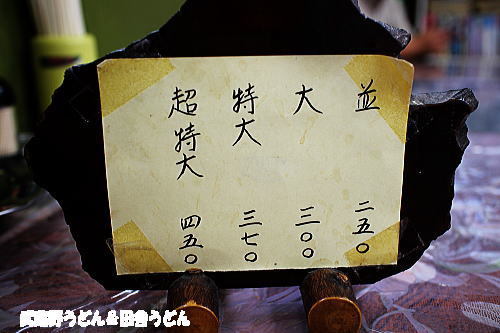 並 二五〇
大 三〇〇
特大 三七〇
超特大 四五〇
武蔵野うどん＆田舎うどん